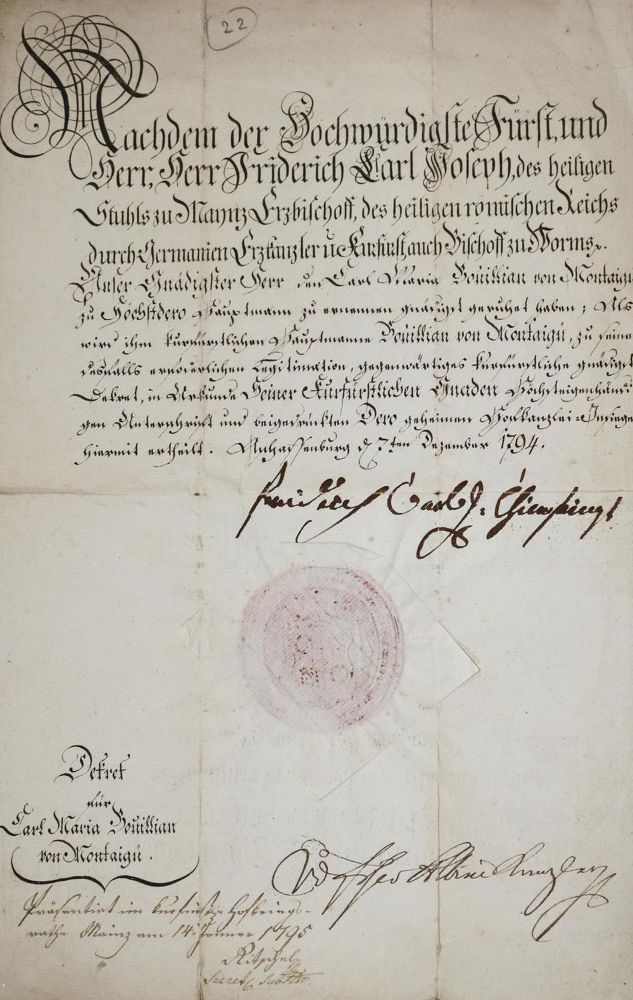 22
Nachdem der Hochwürdigste Fürst, und
Herr, Herr Friderich Carl Joseph, des heiligen
Stuhls zu Maynz Erzbischoff, des heiligen römischen Reichs
durch Germanien Erzkanzler u Kurfürst, auch Bischoff zu Worms
Unser Gnädigster Herr den Carl Maria Bouillian von Montaigü
zu Höchstdero Hauptmann zu ernennen gnädigst geruhet haben; Als
wird ihm kurfürstlichen Hauptmanne Bouillian von Montaigü, zu seiner
desfalls erforderlichen Legitimation, gegenwärtiges kurfürstliche gnädigst
Dekret, in Urkunde Seiner Kurfürstlichen Gnaden Höchsteigenhändi
gen Unterschrift und beigedrückten Dero geheimen Hofkanzlei-Insiege
hiermit ertheilt. Aschaffenburg d 7ten Dezember 1794.
Friderich Carl J. Churfürst
Dekret
für
Carl Maria Bouillian
von Montaigü.
Kanzler
Präsentirt im kurfürstl. Hofkriegs-
rathe Mainz am 14 Jenner 1795